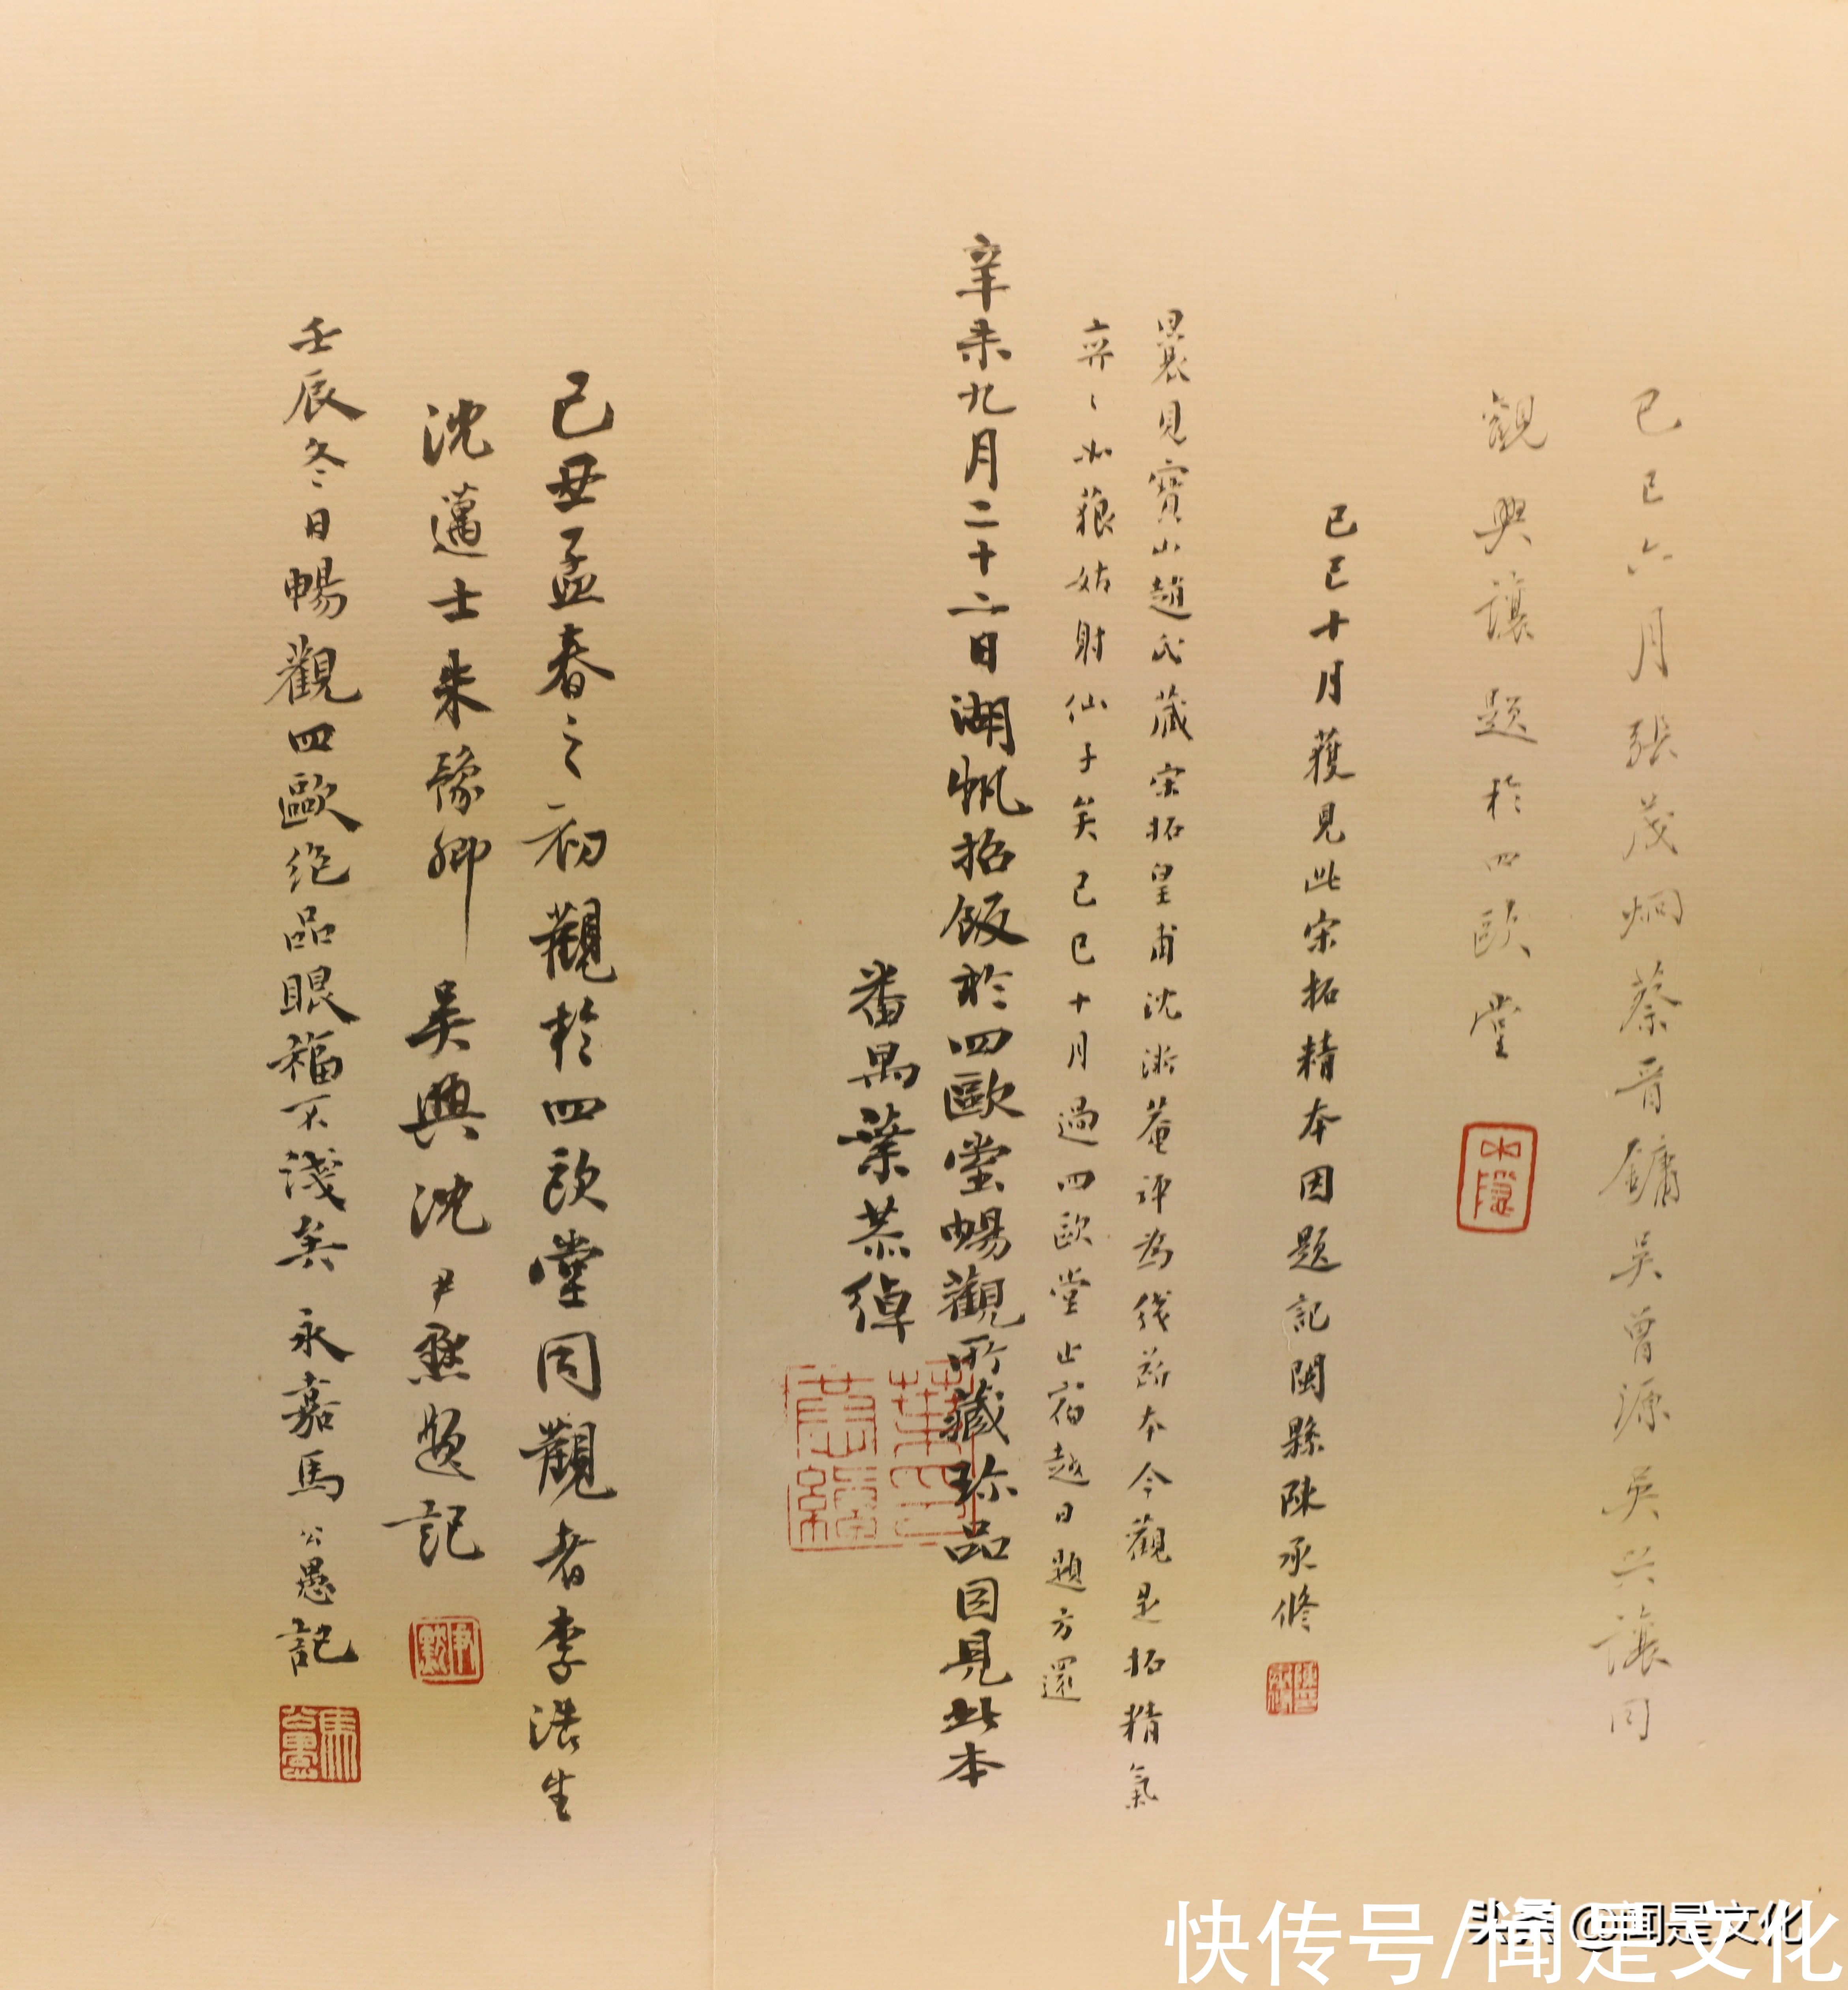 己巳六月張茂炯蔡晋鏞吴曾源吴兴讓同
觀興讓題於四歐堂
己巳十月獲見此宋拓精本因題記閩縣陳承修
曩見寶山趙氏藏宋拓皇甫沈淤菴評為綫斷本今觀是拓精氣
弈〻如藐姑射仙子矣己巳十月過四歐堂止宿越日題方還
辛未九月二十二日湖帆招飯於四歐堂暢觀所藏珍品因見此本
番禺葉恭綽
己丑孟春之初觀於四欧堂同觀者李浩生
沈邁士朱豫卿 吴興沈尹默題記
尹默
壬辰冬日暢觀四歐绝品眼福不淺矣 永嘉馬公愚記
馬公愚
头条 @闻是文化
快传号/闻是文化